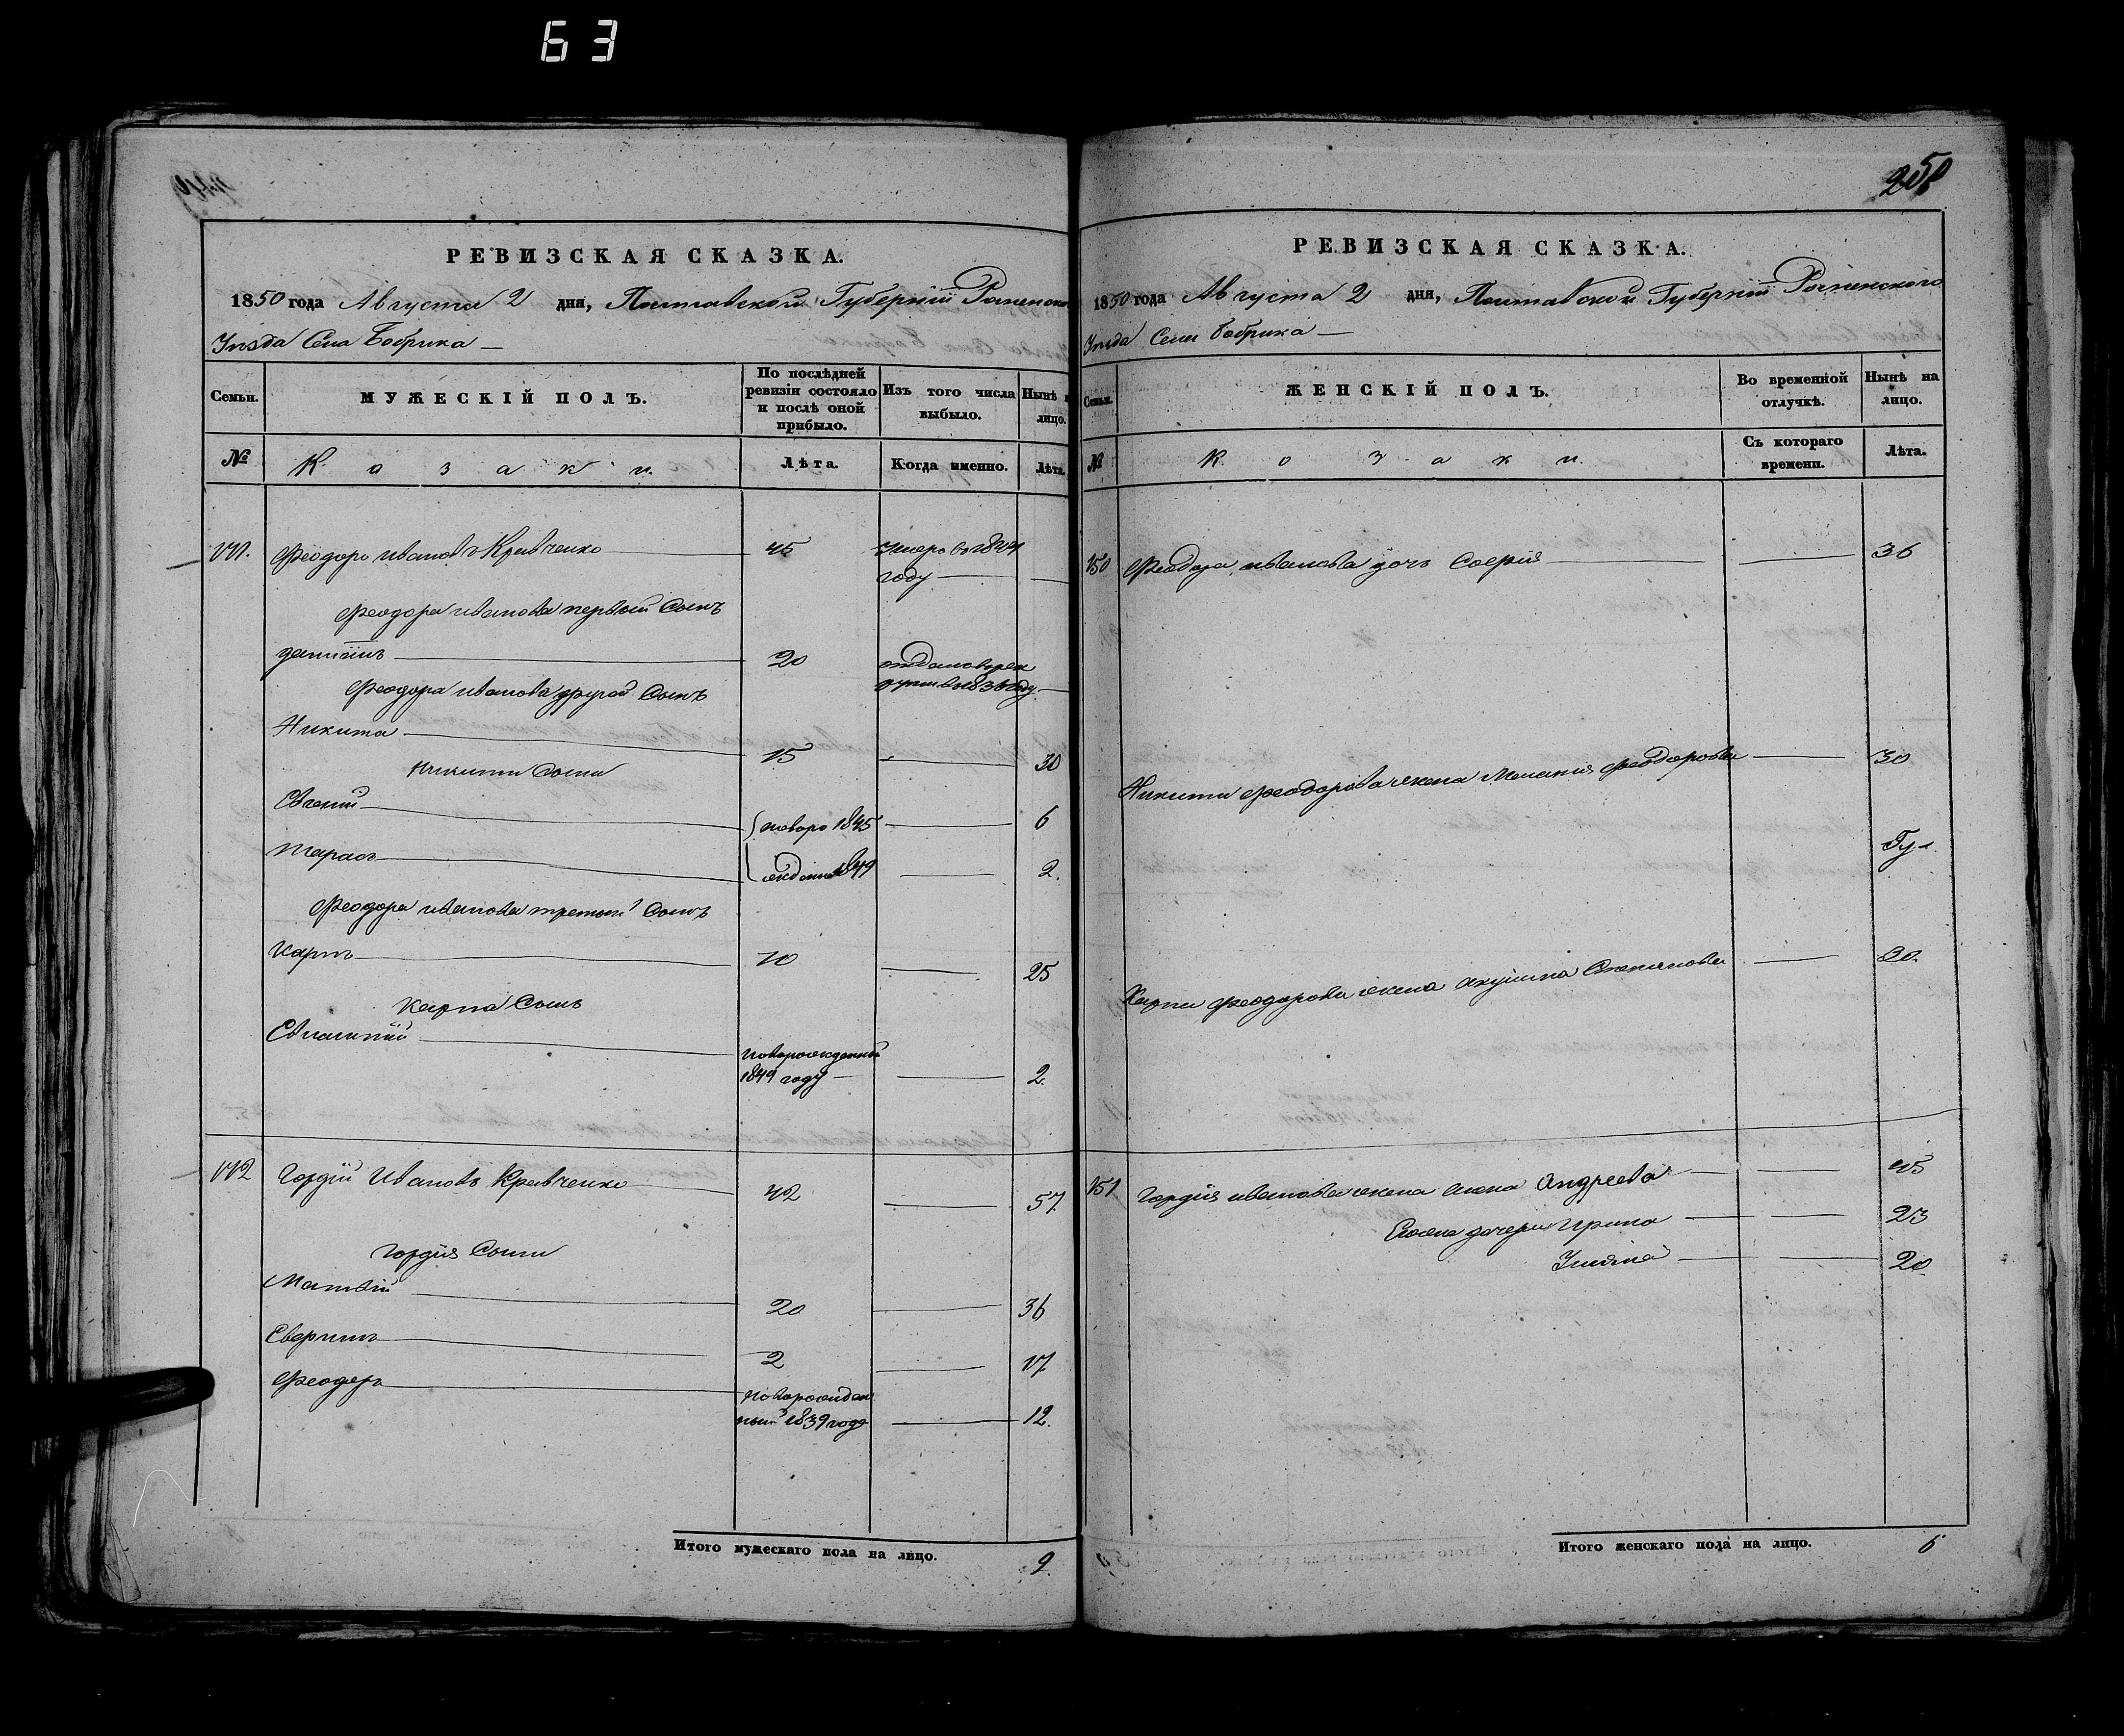 63
РЕВИЗСКАЯ СКАЗКА.
1850 года Августа 2 дня, Полтавской Губерніи Роменско
Уѣзда Села Бобрика
Семьи.
МУЖЕСКІЙ ПОЛЪ.
По послѣдней ревизіи состояло и послѣ оной прибыло.
Изъ того числа выбыло.
Нынѣ н лицо.
№
Козаки
Лѣта.
Когда именно.
Лѣта.
Феодоръ Ивановъ Кравченко 45 умеръ въ 1844
году
Феодора Иванова первый Сынъ
20
Феодора Иванова другой Сынъ
Никита 15 30
Никиты Сыны
Евгений новоро 1845 6
Тарасъ жденный 1849 2.
Феодора Иванова третий Сынъ
Карпъ 10 25
Карпа Сынъ
новорожденный
1849 году 2.
Гордій Ивановъ Кравченко 42 57
Гордія Сыны
Матвѣй 20 36
2 17
Феодоръ новорожден
ный 1839 года 12.
Итого мужескаго пола на лицо. 9
250
РЕВИЗСКАЯ СКАЗКА.
1850 года Августа 2 дня, Полтавской Губерніи Роменского
Уѣзда Села Бобрика
Семьи.
ЖЕНСКІЙ ПОЛЪ.
Во временной отлучкѣ.
Нынѣ на лицо.
№
Козаки.
Съ котораго времени.
Лѣта.
150 Феодора Иванова дочь Софія 36
Никиты Феодорова жена Меланія Феодорова 30
Карпа Феодорова жена Акулина Степанова 20.
151 Гордія Иванова жена Анна Андреева 45
дочери Ирина 23
Ульяна 20
Итого женскаго пола на лицо. 6